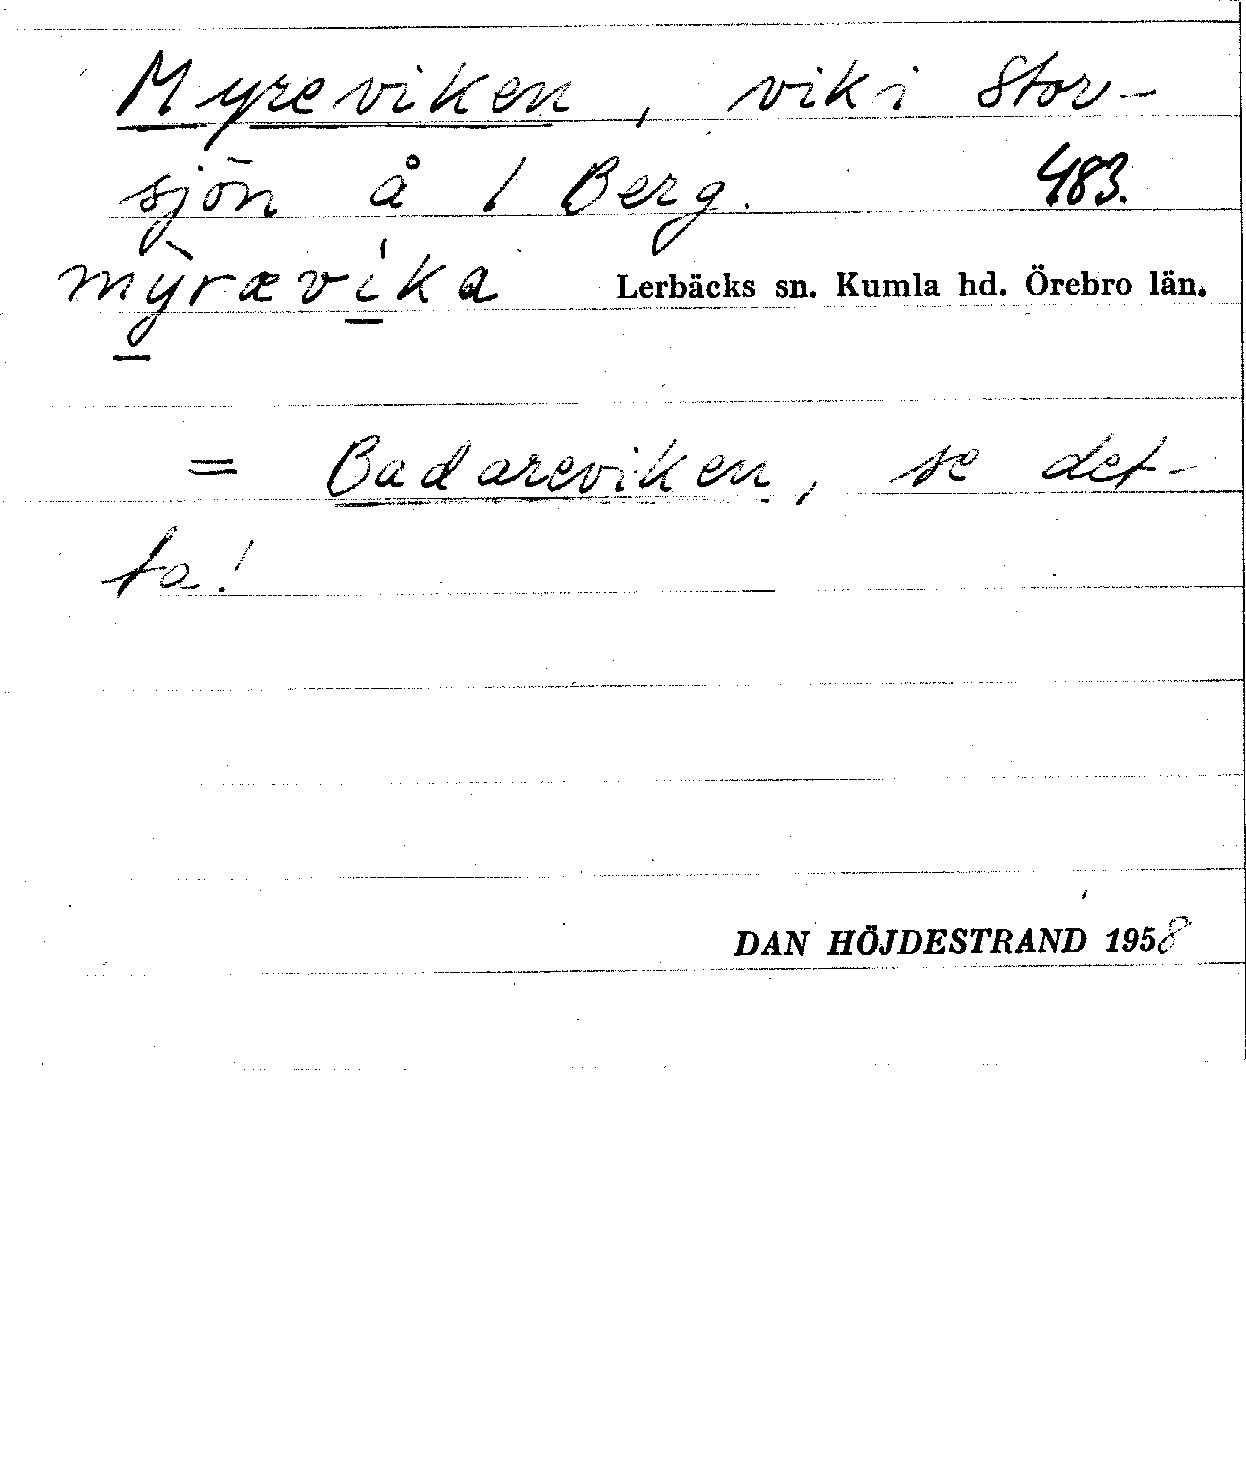 Myreviken, vik i Stor-
sjön å 1 Berg. 483.
mỳrævíka Lerbäcks sn. Kumla hd. Örebro län.
= Badareviken, se det-
ta!
DAN HÖJDESTRAND 1958